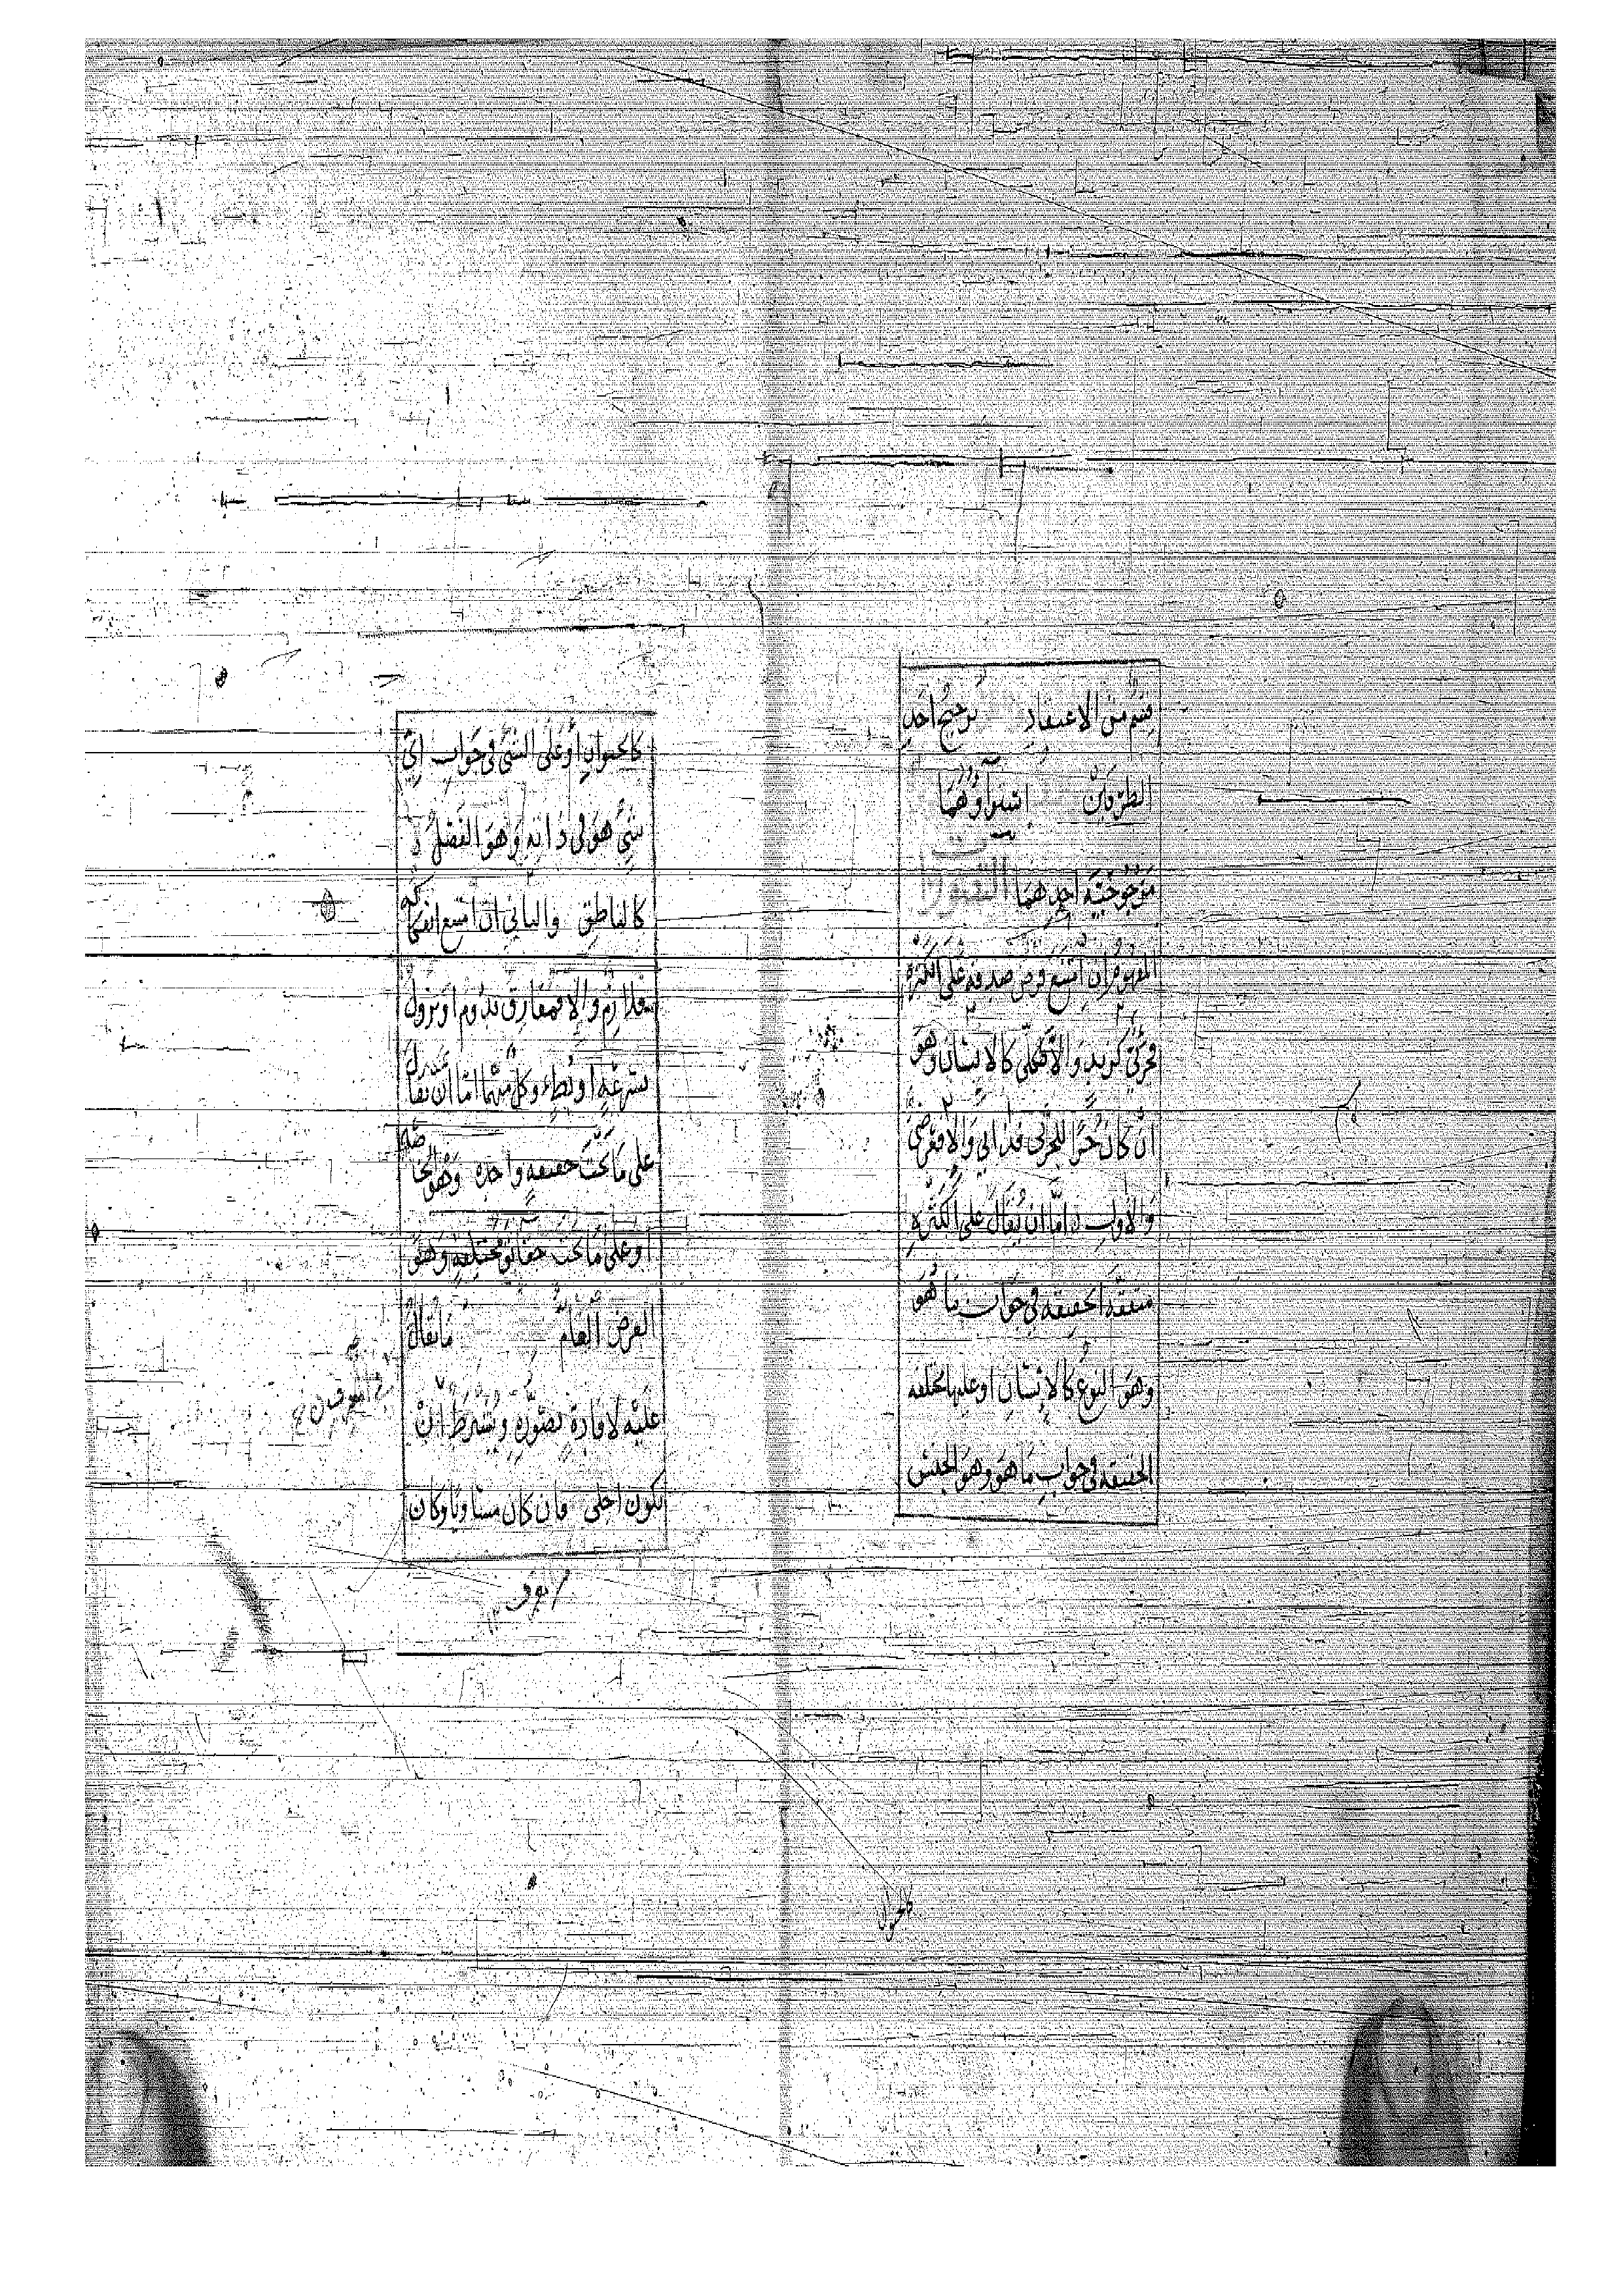 قسم من الاعتقاد ترجيح احد
الطرفين استواؤهما
مرجوحية احدهما التصورات
المفهوم ان امتنع فرض صدقه على الكثرة
فجزئي كزيد والا فكلي كالانسان وهو
ان كان جزأ للجزئي فذاتي والا فعرضي
والاول اما ان يقال على الكثرة
متفقة الحقيقة في جواب ما هو
وهو النوع كالانسان او عليها مختلفة
الحقيقة في جواب ما هو وهو الجنس
كالحيوان
كالحيوان او على الشئ في جواب اي
شئ هو في ذاته وهو الفصل
كالناطق والثاني ان امتنع انفكاكه
فلازم والا فمفارق يدوم او يزول
بسرعة او بطء وكل منهما اما ان يقال
على ما تحت حقيقة واحدة وهو الخاصة
او على ما تحت حقائق مختلفة وهو
العرض العام ما يقال
عليه لافادة تصوره ويشترط ان
يكون اجلى فان كان مساويا وكان